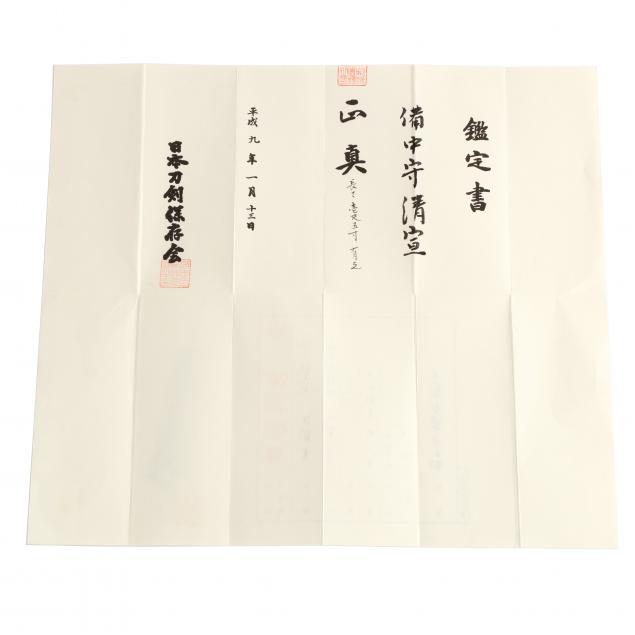 鑑定書
備中守清宣
正真
長さ壱尺五寸
平成九年一月十三日
日本刀剣保存会